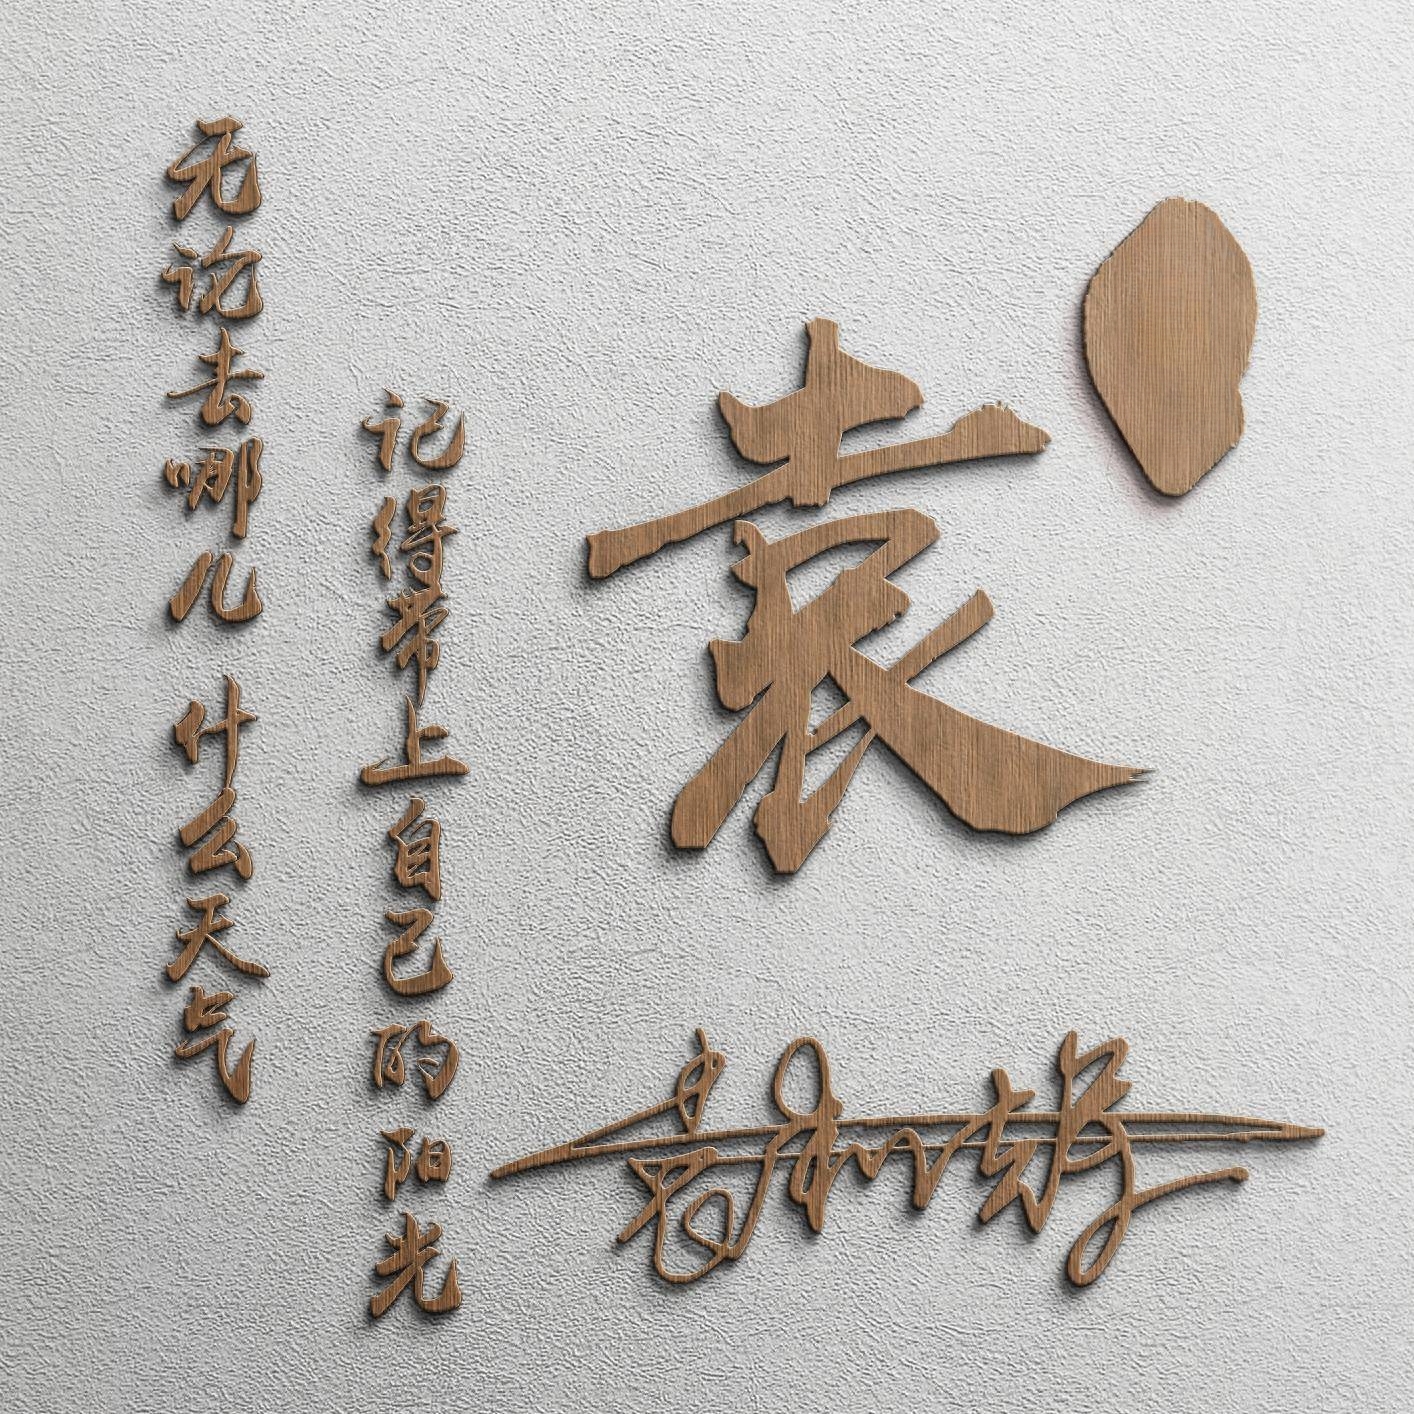 无论去哪儿 什么天气
记得带上自己的阳光
袁